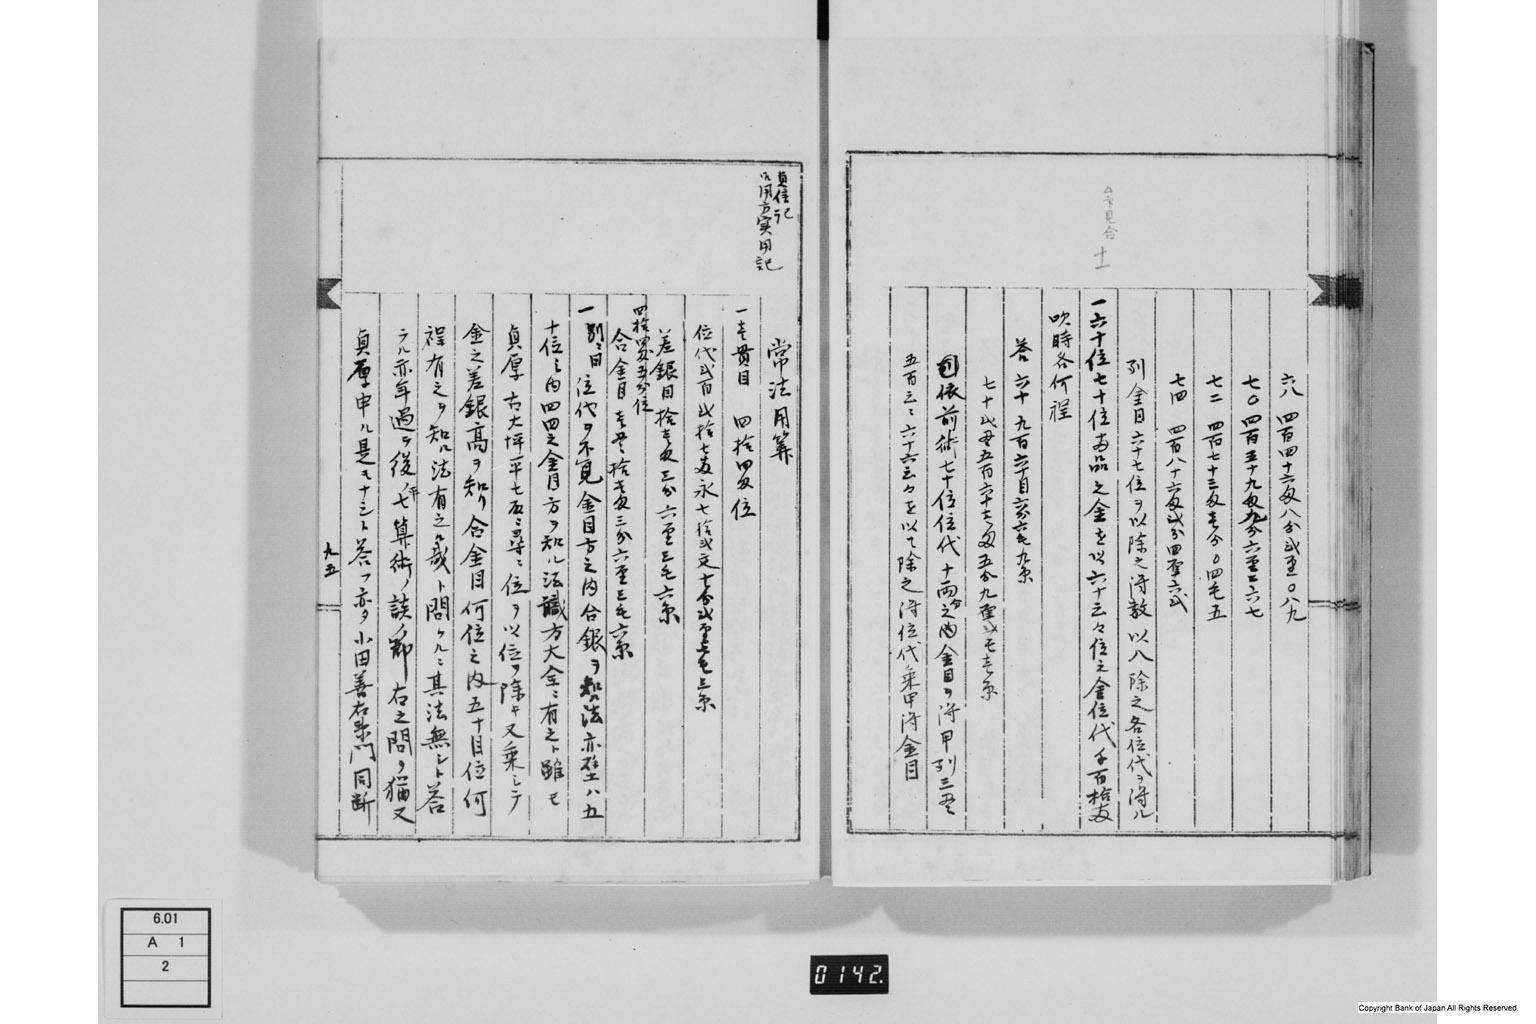 六八 四百四十六匁八分弐厘〇八九
七〇 四百五十九匁九分六厘二六七
七二 四百七十三匁壱分〇四毛五
七四 四百八十六匁弐分四厘六弐
列金目六十七位ヲ以除之得数以八除之各位代ヲ得ル
一六十位七十位両品之金を以六十三々位之金位代千百拾匁
吹時各何程
答 六十 九百六十目六分六毛九糸
七十 弐貫五百六十七匁五分九厘弐毛壱糸
列依前術七十位位代十両之内金目ヲ得甲列三貫
五百三ニ六十六三々を以て除之得位代乗甲得金目
十一
貞信記
吹用方実用記
常法用算
一壱貫目 四拾四匁位
位代弐百弐拾七匁永七拾弐文七分弐厘七毛三糸
差銀目拾壱匁三分六厘三毛六糸
四拾四匁五分位
合金目壱貫拾壱匁三分六厘三毛六糸
一別ニ曰位代ヲ不見金目方之内合銀ヲ知ル法亦壁ハ五
十位之内四四之金目方ヲ知ル法識方大全ニ有之ト雖モ
貞厚 古大坪平七殿ニ尋ニ位ヲ以位ヲ除キ又乗シテ
金之差銀高ヲ知リ合金目何位之内五十目位何
程有之ヲ知ル法有之哉ト問ケルニ其法無シト答
ラル亦年過テ後平七算術ノ談ノ節右之問ヲ猶又
貞厚申ル是モナシト答フ亦タ小田善右衛門同断
九五
6.01
A 1
2
0142.
Copyright Bank of Japan All Rights Reserved.